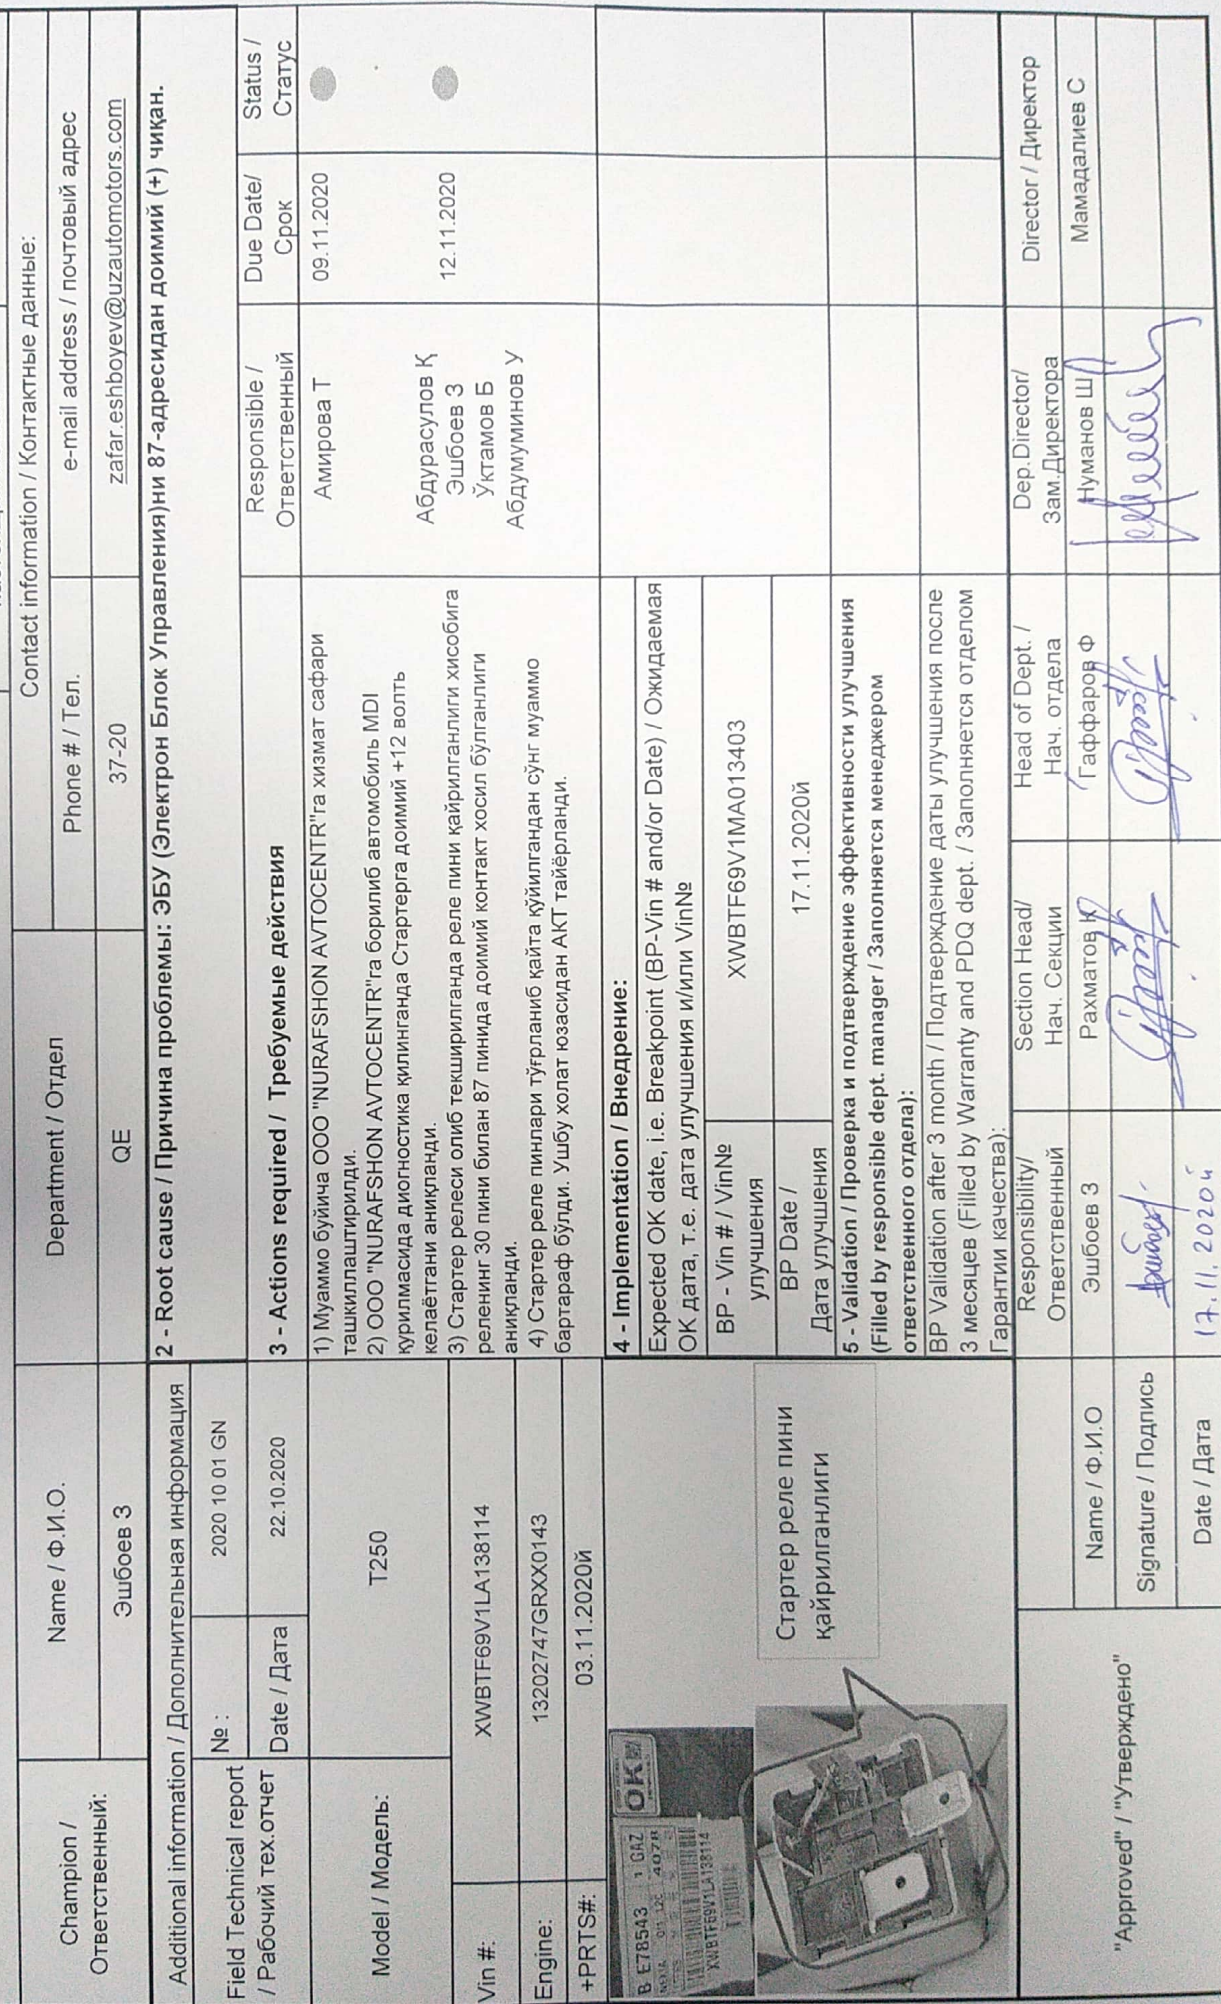 Champion /
Ответственный:
Name / Ф.И.О.
Department / Отдел
Contact information / Контактные данные:
Phone # / Тел.
e-mail address / почтовый адрес
Эшбоев З
QE
37-20
zafar.eshboyev@uzautomotors.com
Additional information / Дополнительная информация
Field Technical report
/ Рабочий тех.отчет
№ :
2020 10 01 GN
Date / Дата
22.10.2020
Model / Модель:
T250
Vin #:
XWBTF69V1LA138114
Engine:
13202747GRXX0143
+PRTS#:
03.11.2020й
B E78543 1 GAZ
4078
OK
XWBTF69V1LA138114
Стартер реле пини
қайрилганлиги
2 - Root cause / Причина проблемы: ЭБУ (Электрон Блок Управления)ни 87-адресидан доимий (+) чиқан.
3 - Actions required / Требуемые действия
Responsible /
Ответственный
Due Date/
Срок
Status /
Статус
1) Муаммо буйича ООО "NURAFSHON AVTOCENTR"га хизмат сафари
ташкиллаштирилди.
2) ООО "NURAFSHON AVTOCENTR"га борилиб автомобиль MDI
курилмасида диогностика қилинганда Стартерга доимий +12 волть
келаётгани аниқланди.
3) Стартер релеси олиб текширилганда реле пини қайрилганлиги хисобига
реленинг 30 пини билан 87 пинида доимий контакт хосил бўлганлиги
аниқланди.
4) Стартер реле пинлари тўғрланиб қайта қўйилгандан сўнг муаммо
бартараф бўлди. Ушбу холат юзасидан АКТ тайёрланди.
Амирова Т
09.11.2020
Абдурасулов Қ
Эшбоев З
Ўктамов Б
Абдумуминов У
12.11.2020
4 - Implementation / Внедрение:
Expected OK date, i.e. Breakpoint (BP-Vin # and/or Date) / Ожидаемая
ОК дата, т.е. дата улучшения и/или Vin№
BP - Vin # / Vin№
улучшения
XWBTF69V1MA013403
BP Date /
Дата улучшения
17.11.2020й
5 - Validation / Проверка и подтверждение эффективности улучшения
(Filled by responsible dept. manager / Заполняется менеджером
ответственного отдела):
BP Validation after 3 month / Подтверждение даты улучшения после
3 месяцев (Filled by Warranty and PDQ dept. / Заполняется отделом
Гарантии качества):
"Approved" / "Утверждено"
Responsibility/
Ответственный
Section Head/
Нач. Секции
Head of Dept. /
Нач. отдела
Dep.Director/
Зам.Директора
Director / Директор
Name / Ф.И.О
Эшбоев З
Рахматов К
Гаффаров Ф
Нуманов Ш
Мамадалиев С
Signature / Подпись
Date / Дата
17.11.2020й